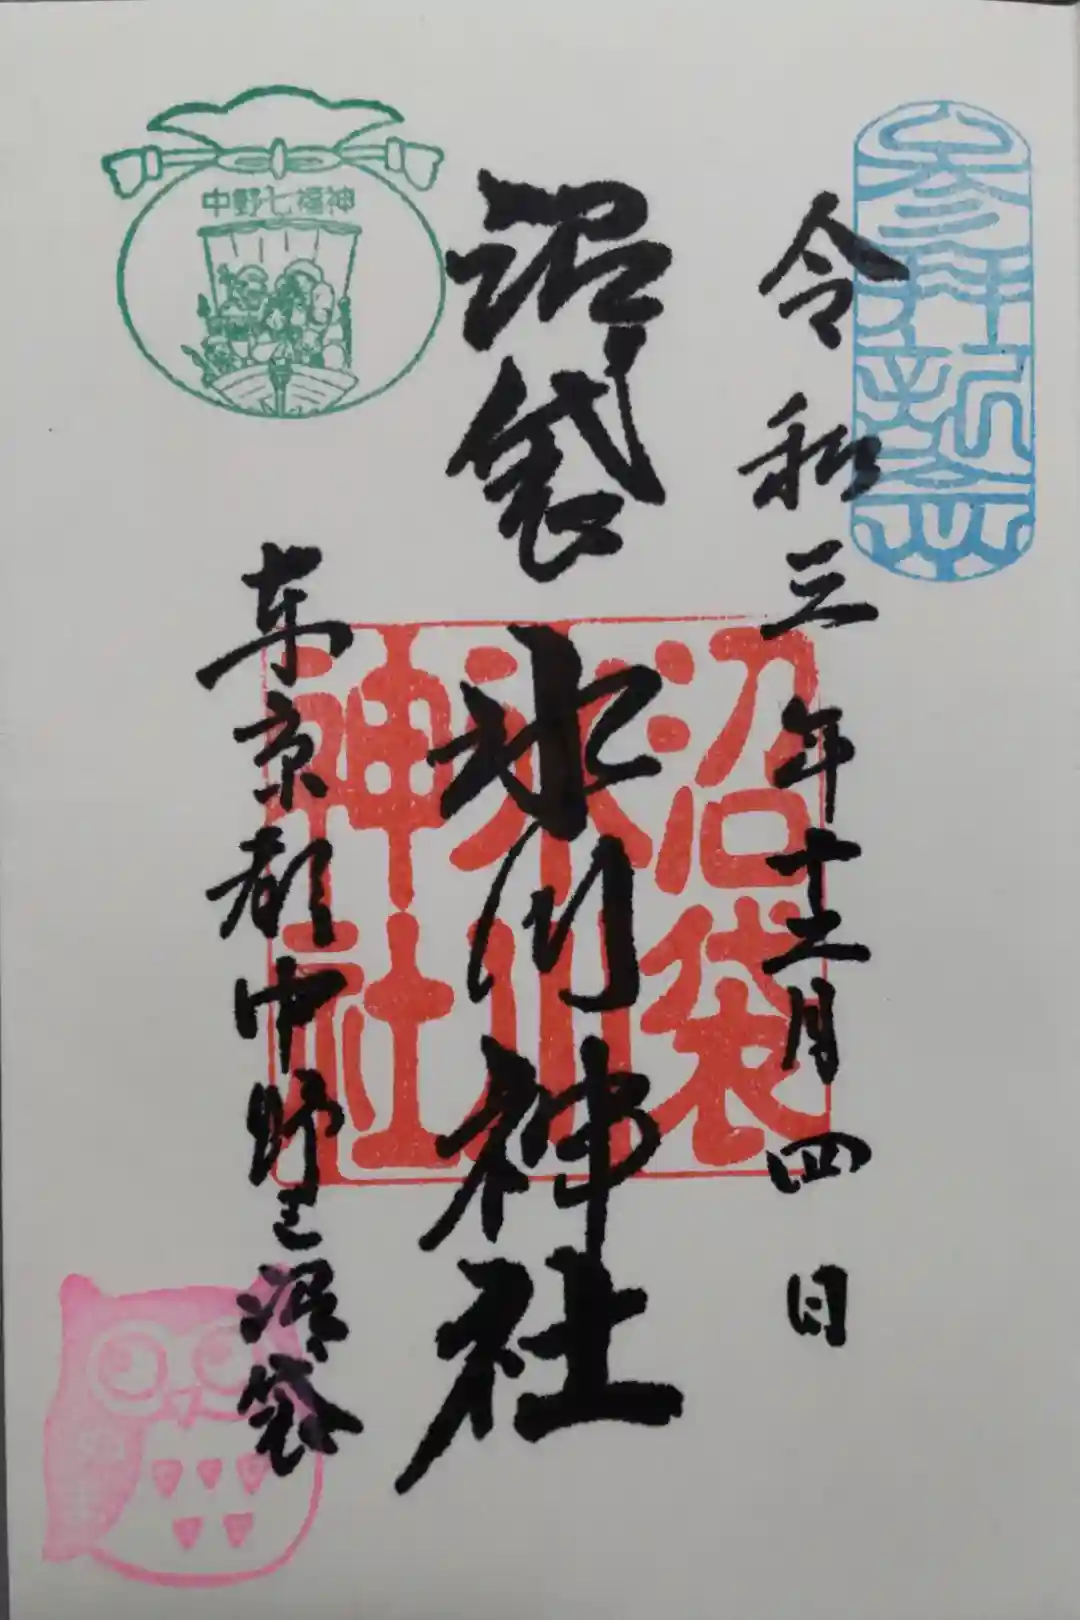 参拝祈念
令和三年十二月四日
沼袋氷川神社
沼袋
氷川
神社
東京都中野区沼袋
中野七福神